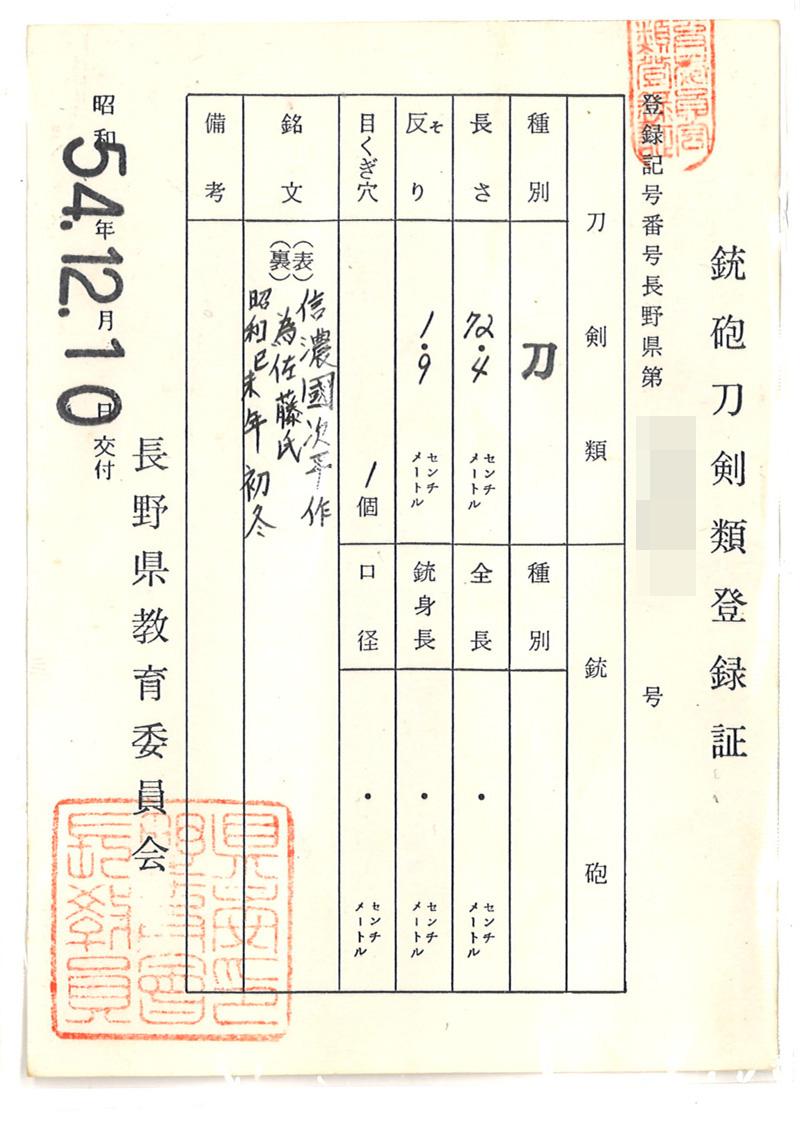 銃砲刀剣類登録証
登録記号番号長野県第 号
刀剣類
銃砲
種別
刀
種別
長さ
72.4
センチメートル
全長
・
センチメートル
反り
そ
1.9
センチメートル
銃身長
・
センチメートル
目くぎ穴
1個
口径
・
センチメートル
銘文
(表)
信濃國次平作
(裏)
為佐藤氏
昭和己未年初冬
備考
昭和54年12月10日交付
長野県教育委員会